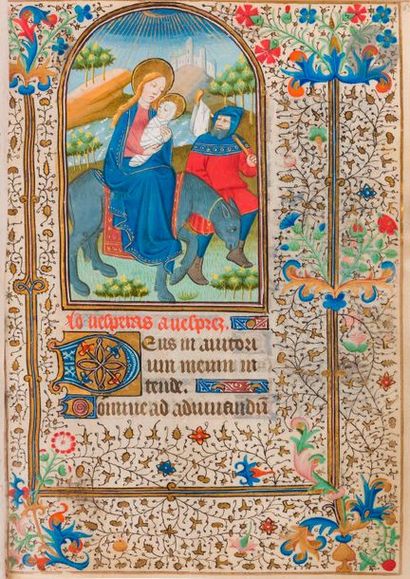 Ad vesperas a vesprez.
Deus in adiutori
um meum in
tende.
Domine ad adiuvandũ